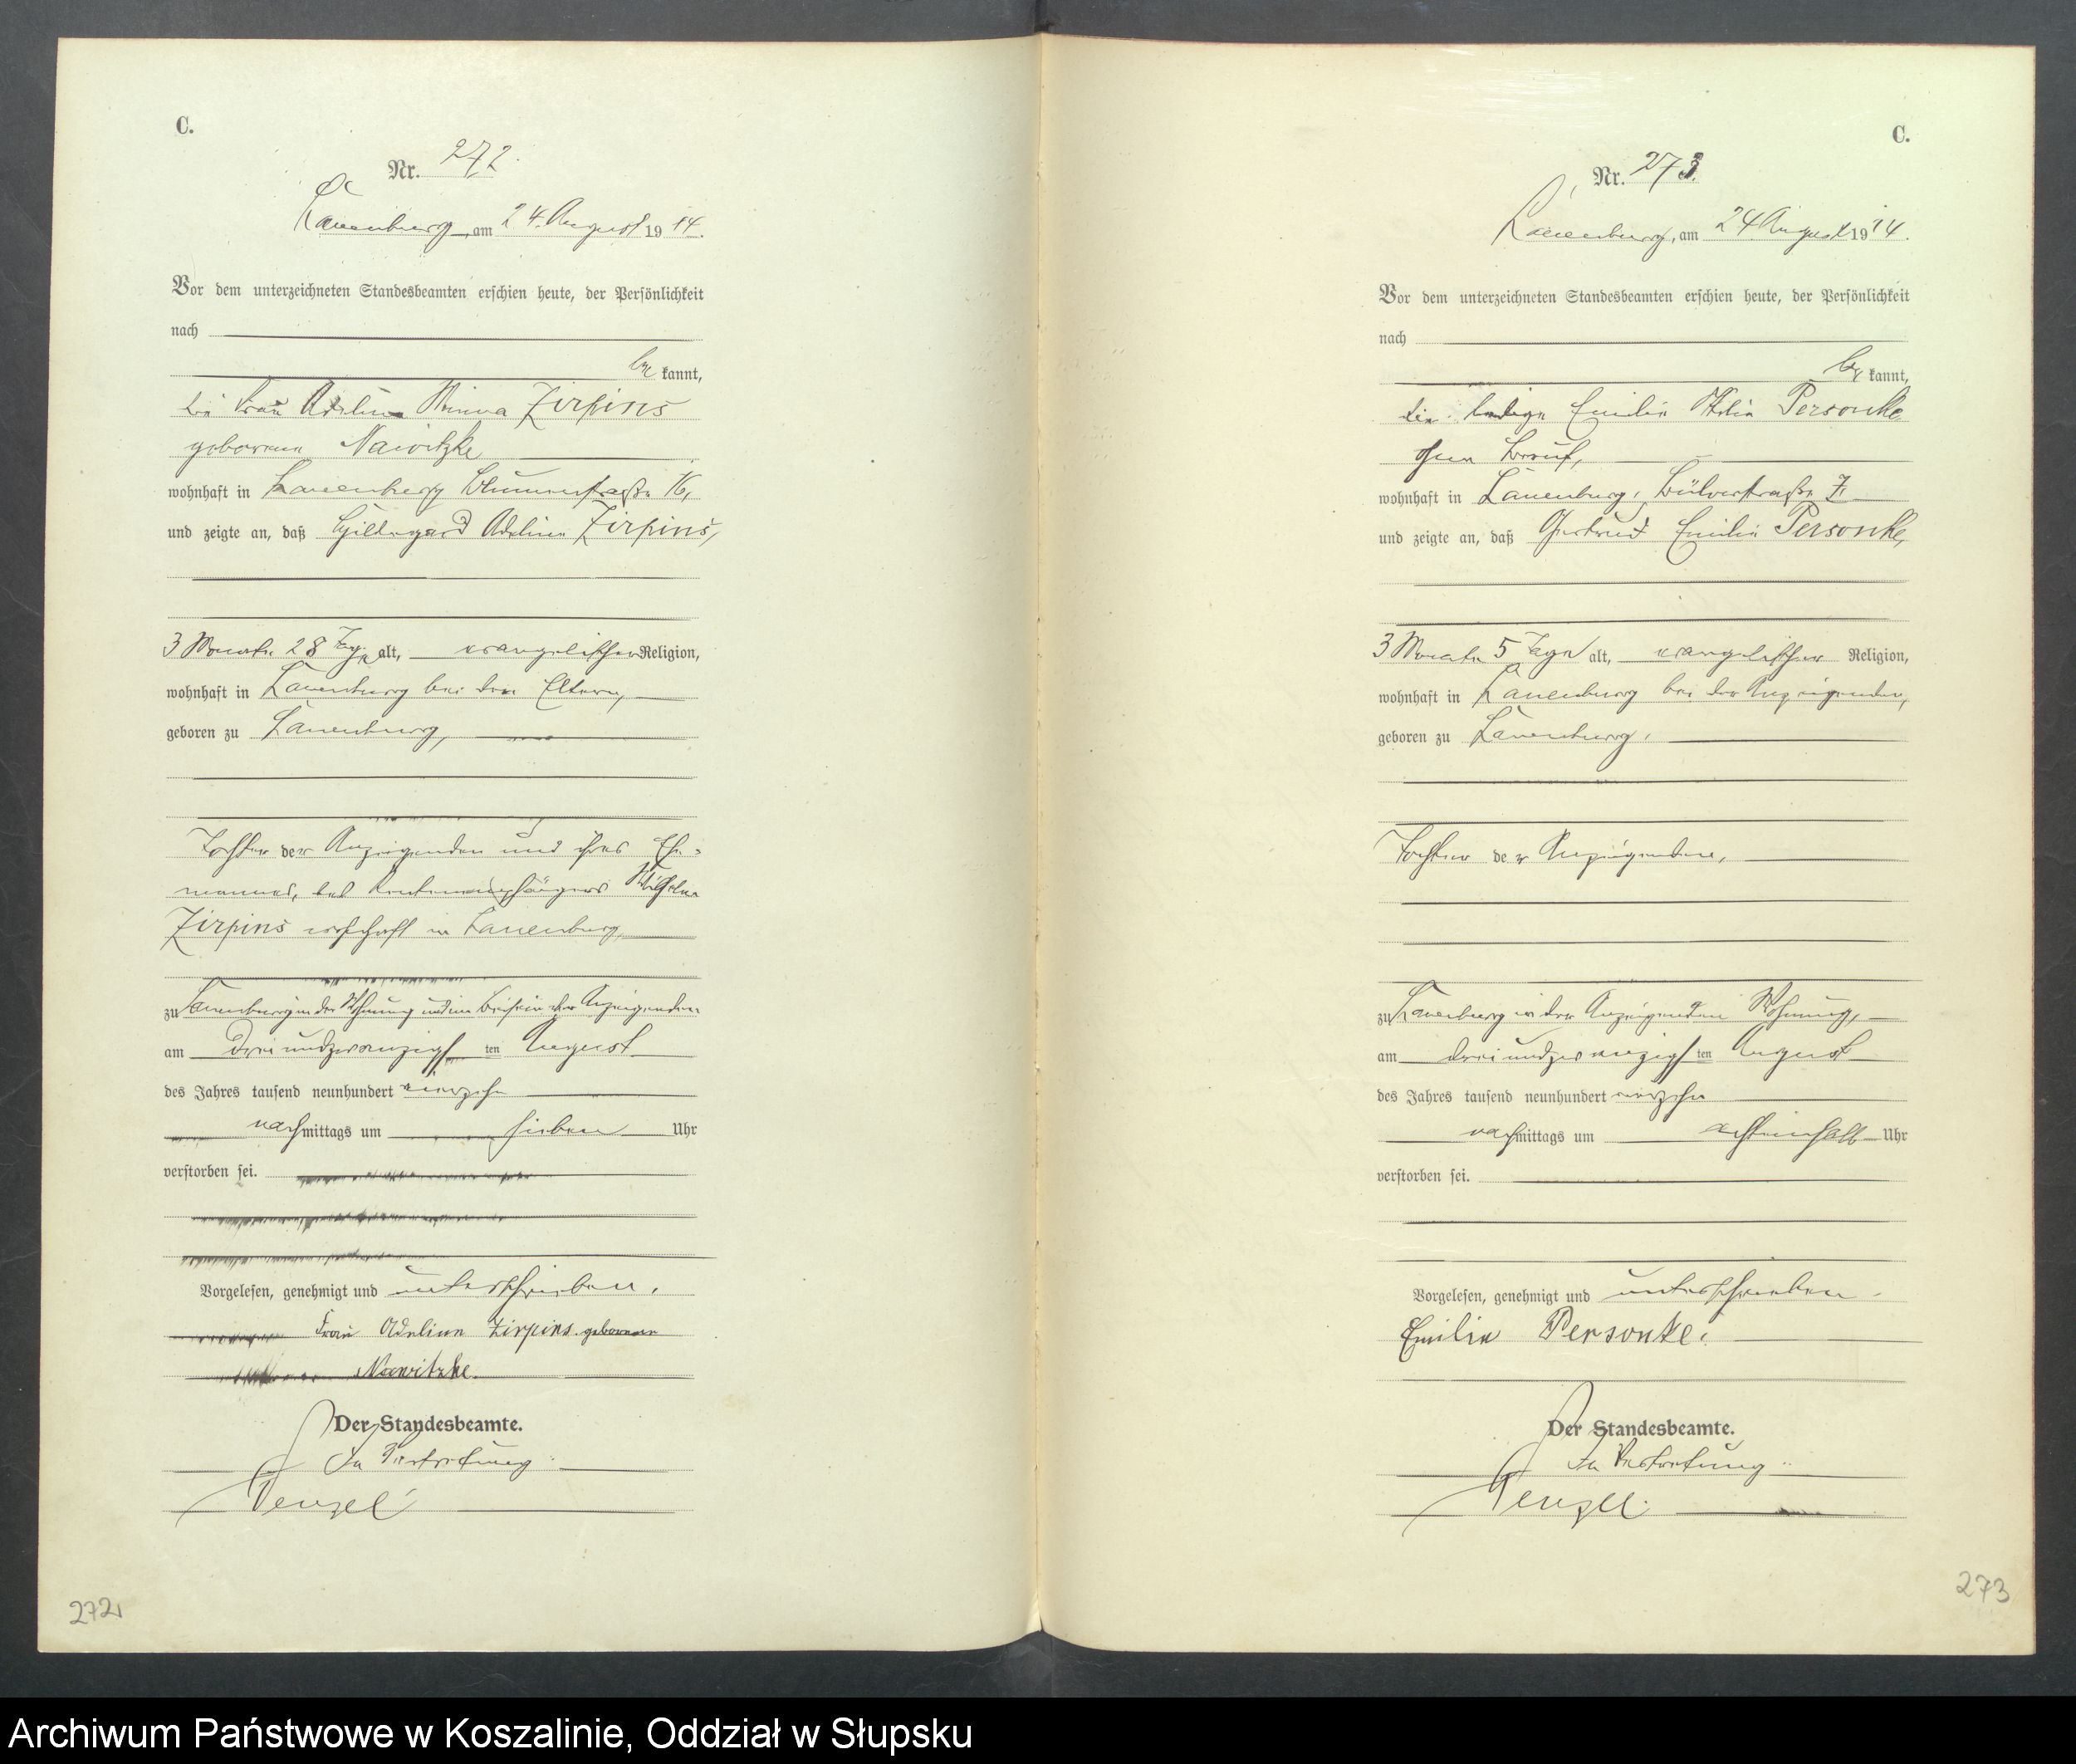 C.
Nr. 272.
Lauenburg, am 24. August 19 14.
Vor dem unterzeichneten Standesbeamten erschien heute, der Persönlichkeit
nach
be kannt,
die Frau Adeline Minna Zirpins
geborene Nawitzke
wohnhaft in Lauenburg Blumenstraße 16,
und zeigte an, daß Hildegard Adeline Zirpins,
3 Monate 28 Tage alt, evangelischer Religion,
wohnhaft in Lauenburg bei den Eltern,
geboren zu Lauenburg,
Tochter der Anzeigenden und ihres Ehe-
mannes, des Rentenempfängers Wilhelm
Zirpins wohnhaft in Lauenburg,
zu Lauenburg in der Wohnung und im Beisein der Anzeigenden
am dreiundzwanzigsten August
des Jahres tausend neunhundert vierzehn
nachmittags um sieben Uhr
verstorben sei.
Vorgelesen, genehmigt und unterschrieben.
Frau Adeline Zirpins geborene
Nawitzke.
Der Standesbeamte.
In Vertretung:
272
C.
Nr. 273.
Lauenburg, am 24 August 19 14.
Vor dem unterzeichneten Standesbeamten erschien heute, der Persönlichkeit
nach
be kannt,
die ledige Emilie Personke
ohne Beruf,
wohnhaft in Lauenburg, Bülowstraße 7.
und zeigte an, daß Gertrud Emilie Personke,
3 Monate 5 Tage alt, evangelischer Religion,
wohnhaft in Lauenburg bei der Anzeigenden,
geboren zu Lauenburg,
Tochter der Anzeigenden,
zu Lauenburg in der Anzeigenden Wohnung,
am dreiundzwanzigsten August
des Jahres tausend neunhundert vierzehn
nachmittags um achteinhalb Uhr
verstorben sei.
Vorgelesen, genehmigt und unterschrieben.
Emilie Personke.
Der Standesbeamte.
In Vertretung:
273
Archiwum Państwowe w Koszalinie, Oddział w Słupsku